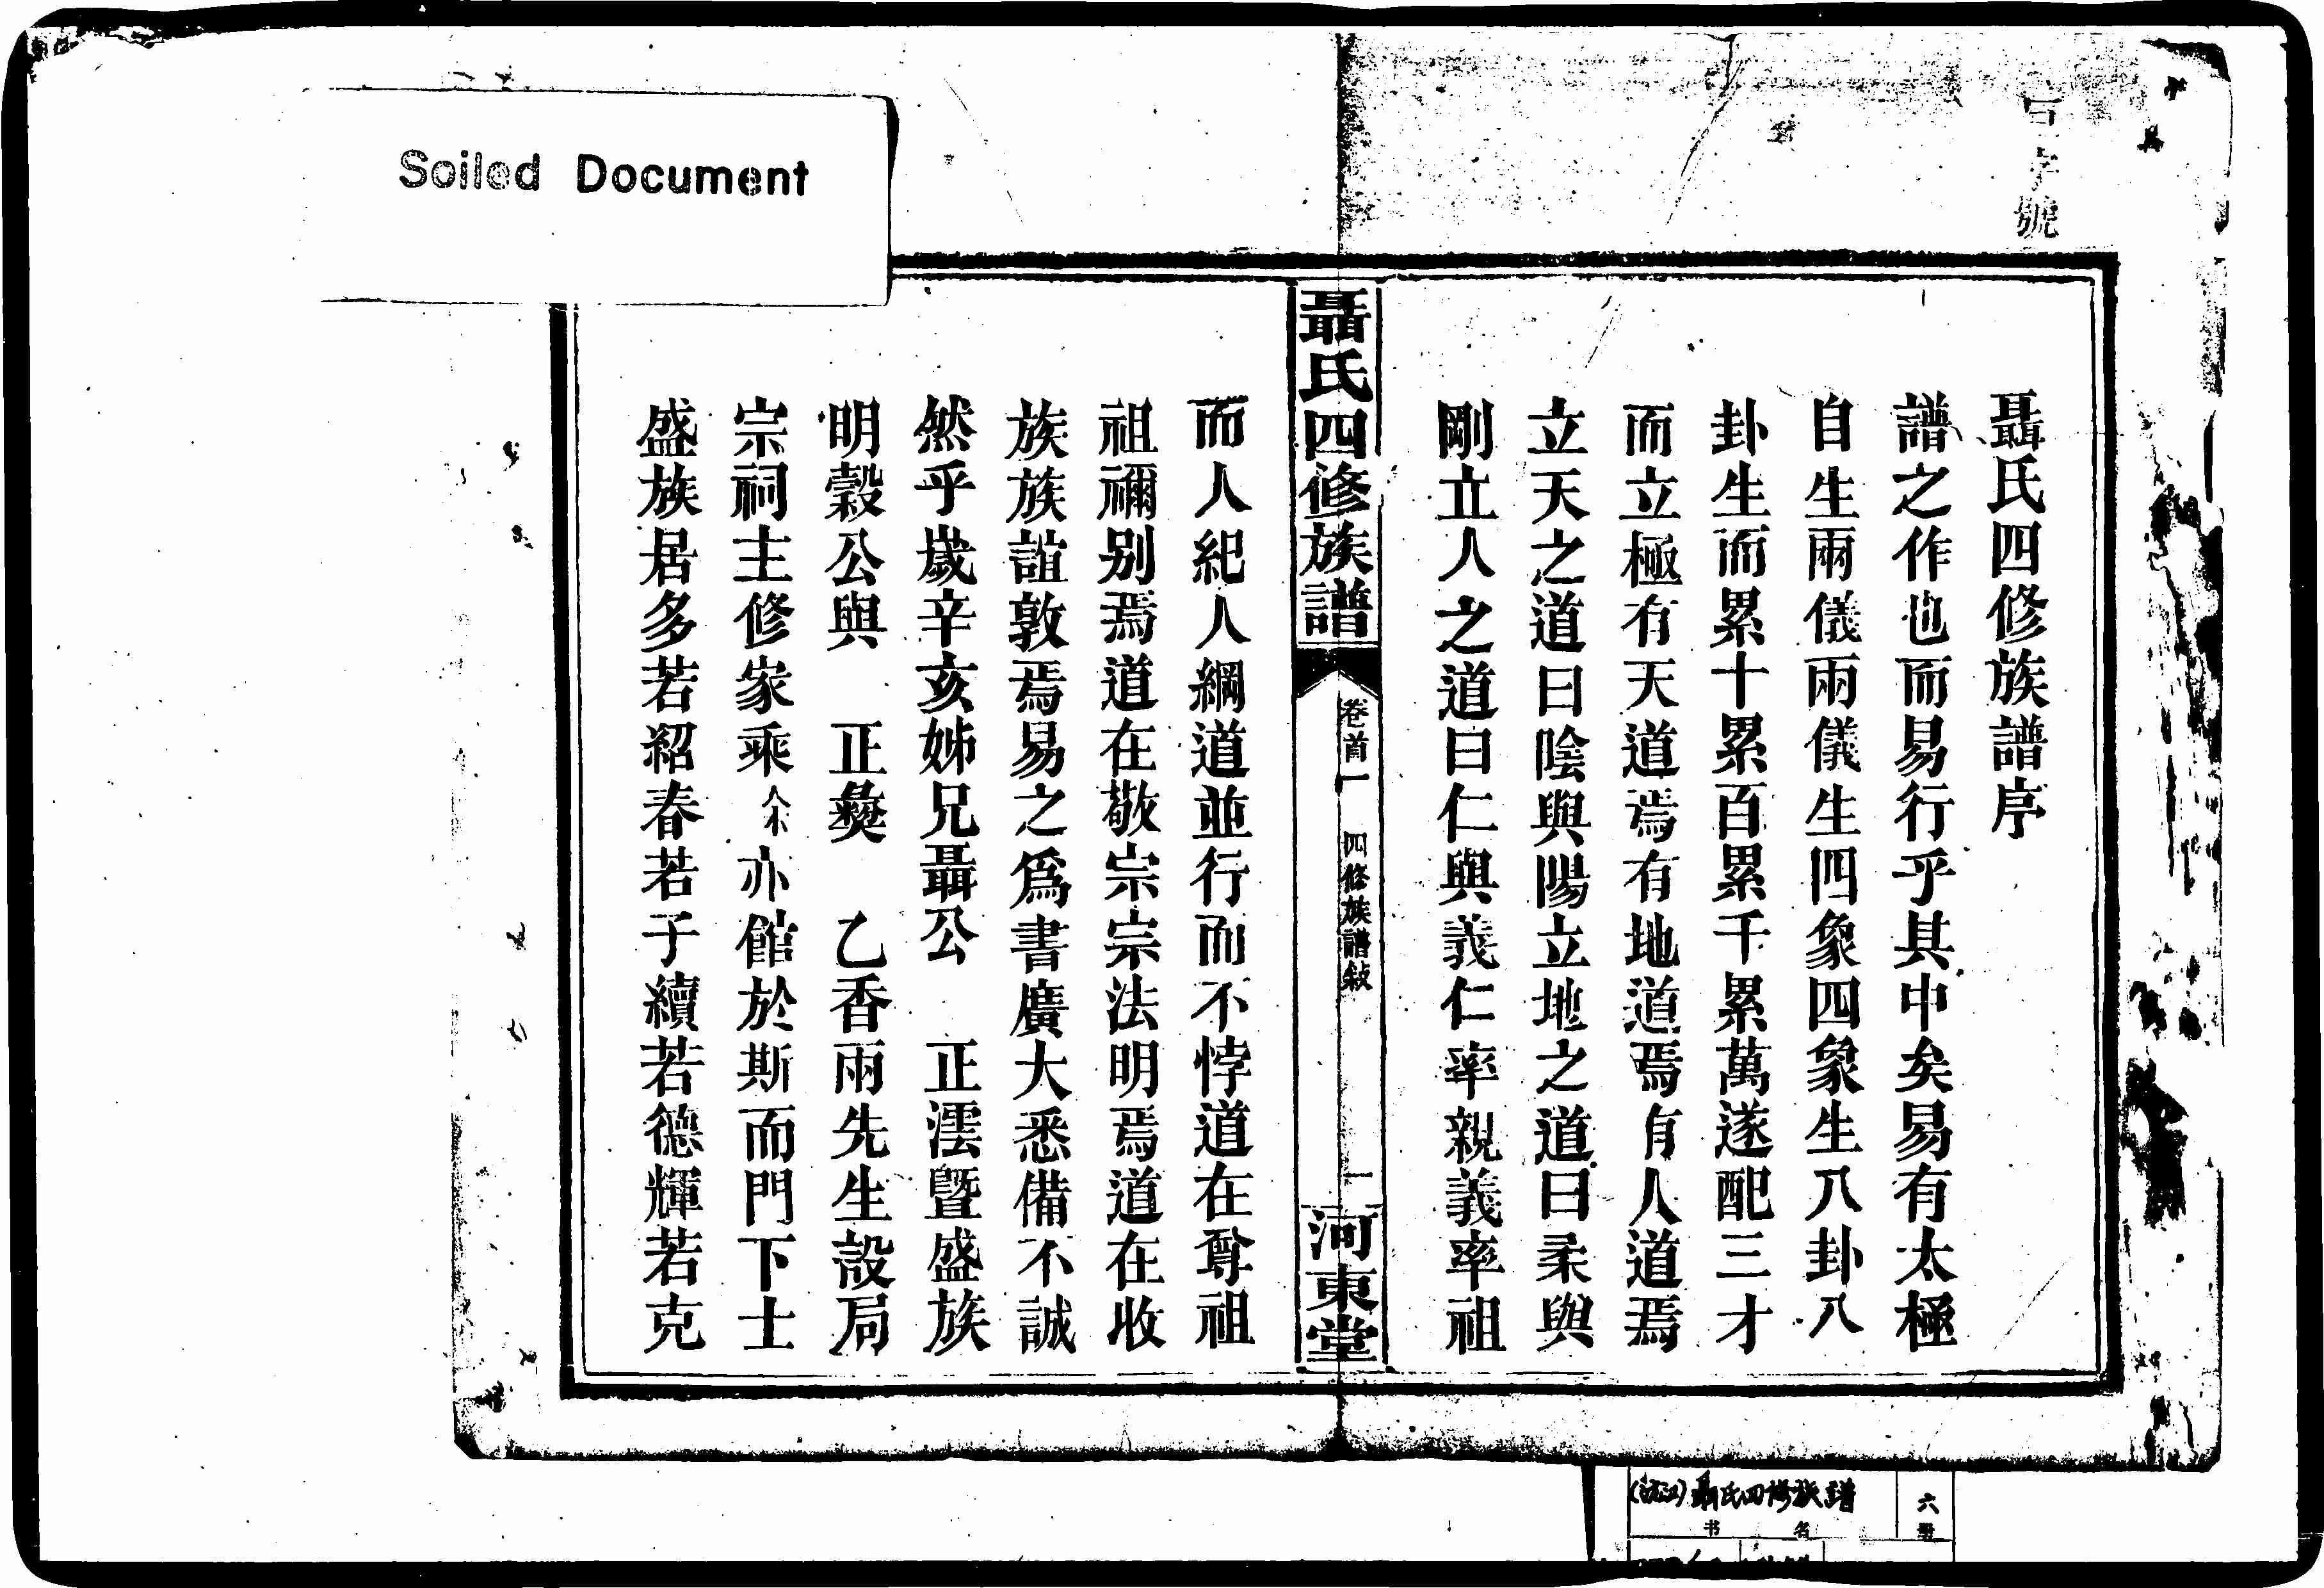 Soiled Document
字號
聶氏四修族譜序
譜之作也而易行乎其中矣易有太極
自生兩儀兩儀生四象四象生八卦八
卦生而累十累百累千累萬遂配三才
而立極有天道焉有地道焉有人道焉
立天之道曰陰與陽立地之道曰柔與
剛立人之道曰仁與義仁率親義率祖
聶氏四修族譜
卷首一
四修族譜敍
一
河東堂
而人紀人綱道並行而不悖道在尊祖
祖禰别焉道在敬宗宗法明焉道在收
族族誼敦焉易之爲書廣大悉備不誠
然乎歲辛亥姊兄聶公 正澐暨盛族
明穀公與 正彜 乙香兩先生設局
宗祠主修家乘 亦館於斯而門下士
盛族居多若紹春若子續若德輝若克
聶氏四修族譜
书名
六